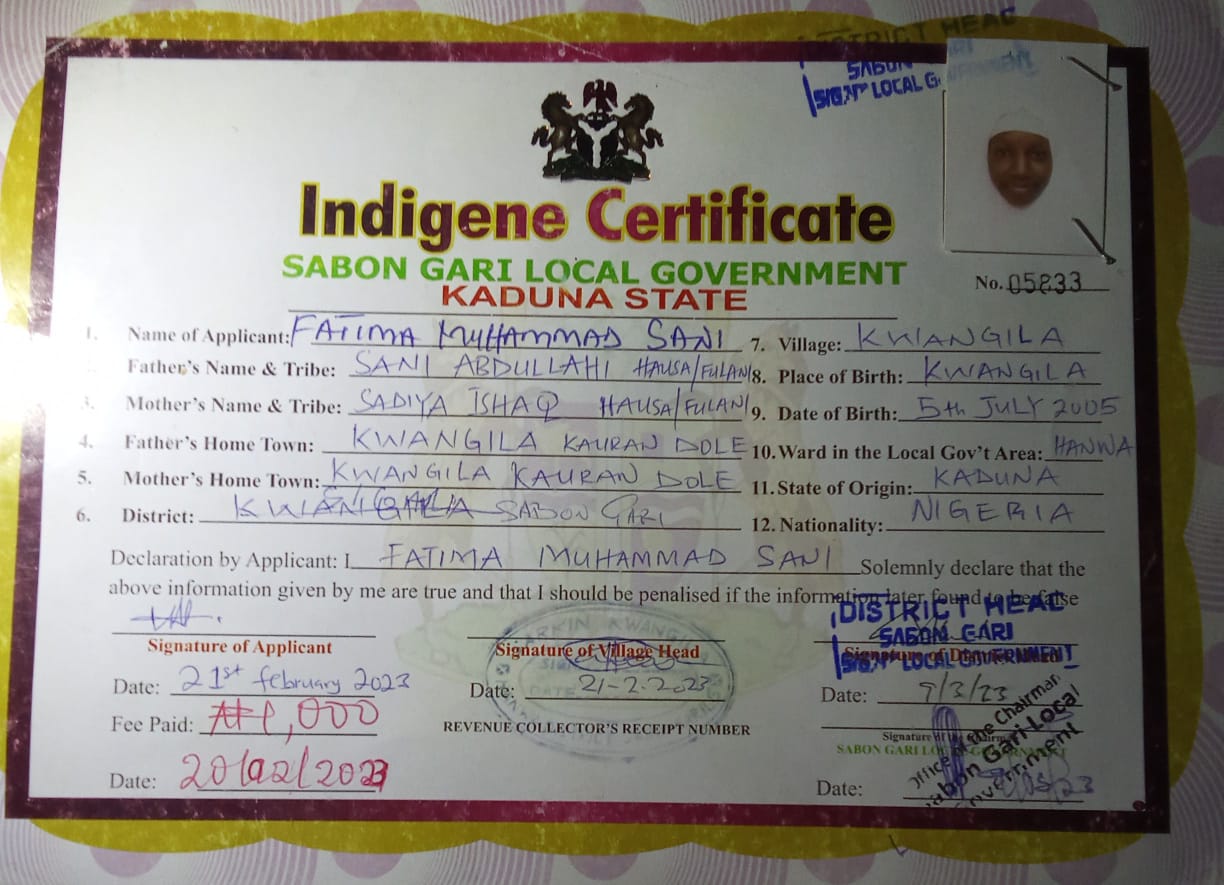 DISTRICT HEAD
SABON
SIGN LOCAL G
Indigene Certificate
SABON GARI LOCAL GOVERNMENT
KADUNA STATE
No. 05833
1. Name of Applicant: FATIMA MUHAMMAD SANI
7. Village: KWANGILA
Father's Name & Tribe: SANI ABDULLAHI HAUSA/FULANI
8. Place of Birth: KWANGILA
3. Mother's Name & Tribe: SADIYA ISHAQ HAUSA/FULANI
9. Date of Birth: 5th JULY 2005
4. Father's Home Town: KWANGILA KAURAN DOLE
10. Ward in the Local Gov't Area: HANWA
5. Mother's Home Town: KWANGILA KAURAN DOLE
11. State of Origin: KADUNA
6. District: KWANGILA SABON GARI
12. Nationality: NIGERIA
Declaration by Applicant: I FATIMA MUHAMMAD SANI Solemnly declare that the
above information given by me are true and that I should be penalised if the information later found to be false
DISTRICT HEAD
SABON GARI
SIGN LOCAL GOVERNMENT
Signature of Applicant
Signature of Village Head
Signature of
Date: 21st february 2023
Date: 21-2-2023
Date: 9/3/23
Fee Paid: ₦1,000
REVENUE COLLECTOR'S RECEIPT NUMBER
Signature
SABON GARI
Office of the Chairman
Sabon Gari Local
Government
Date: 20/02/2023
Date: